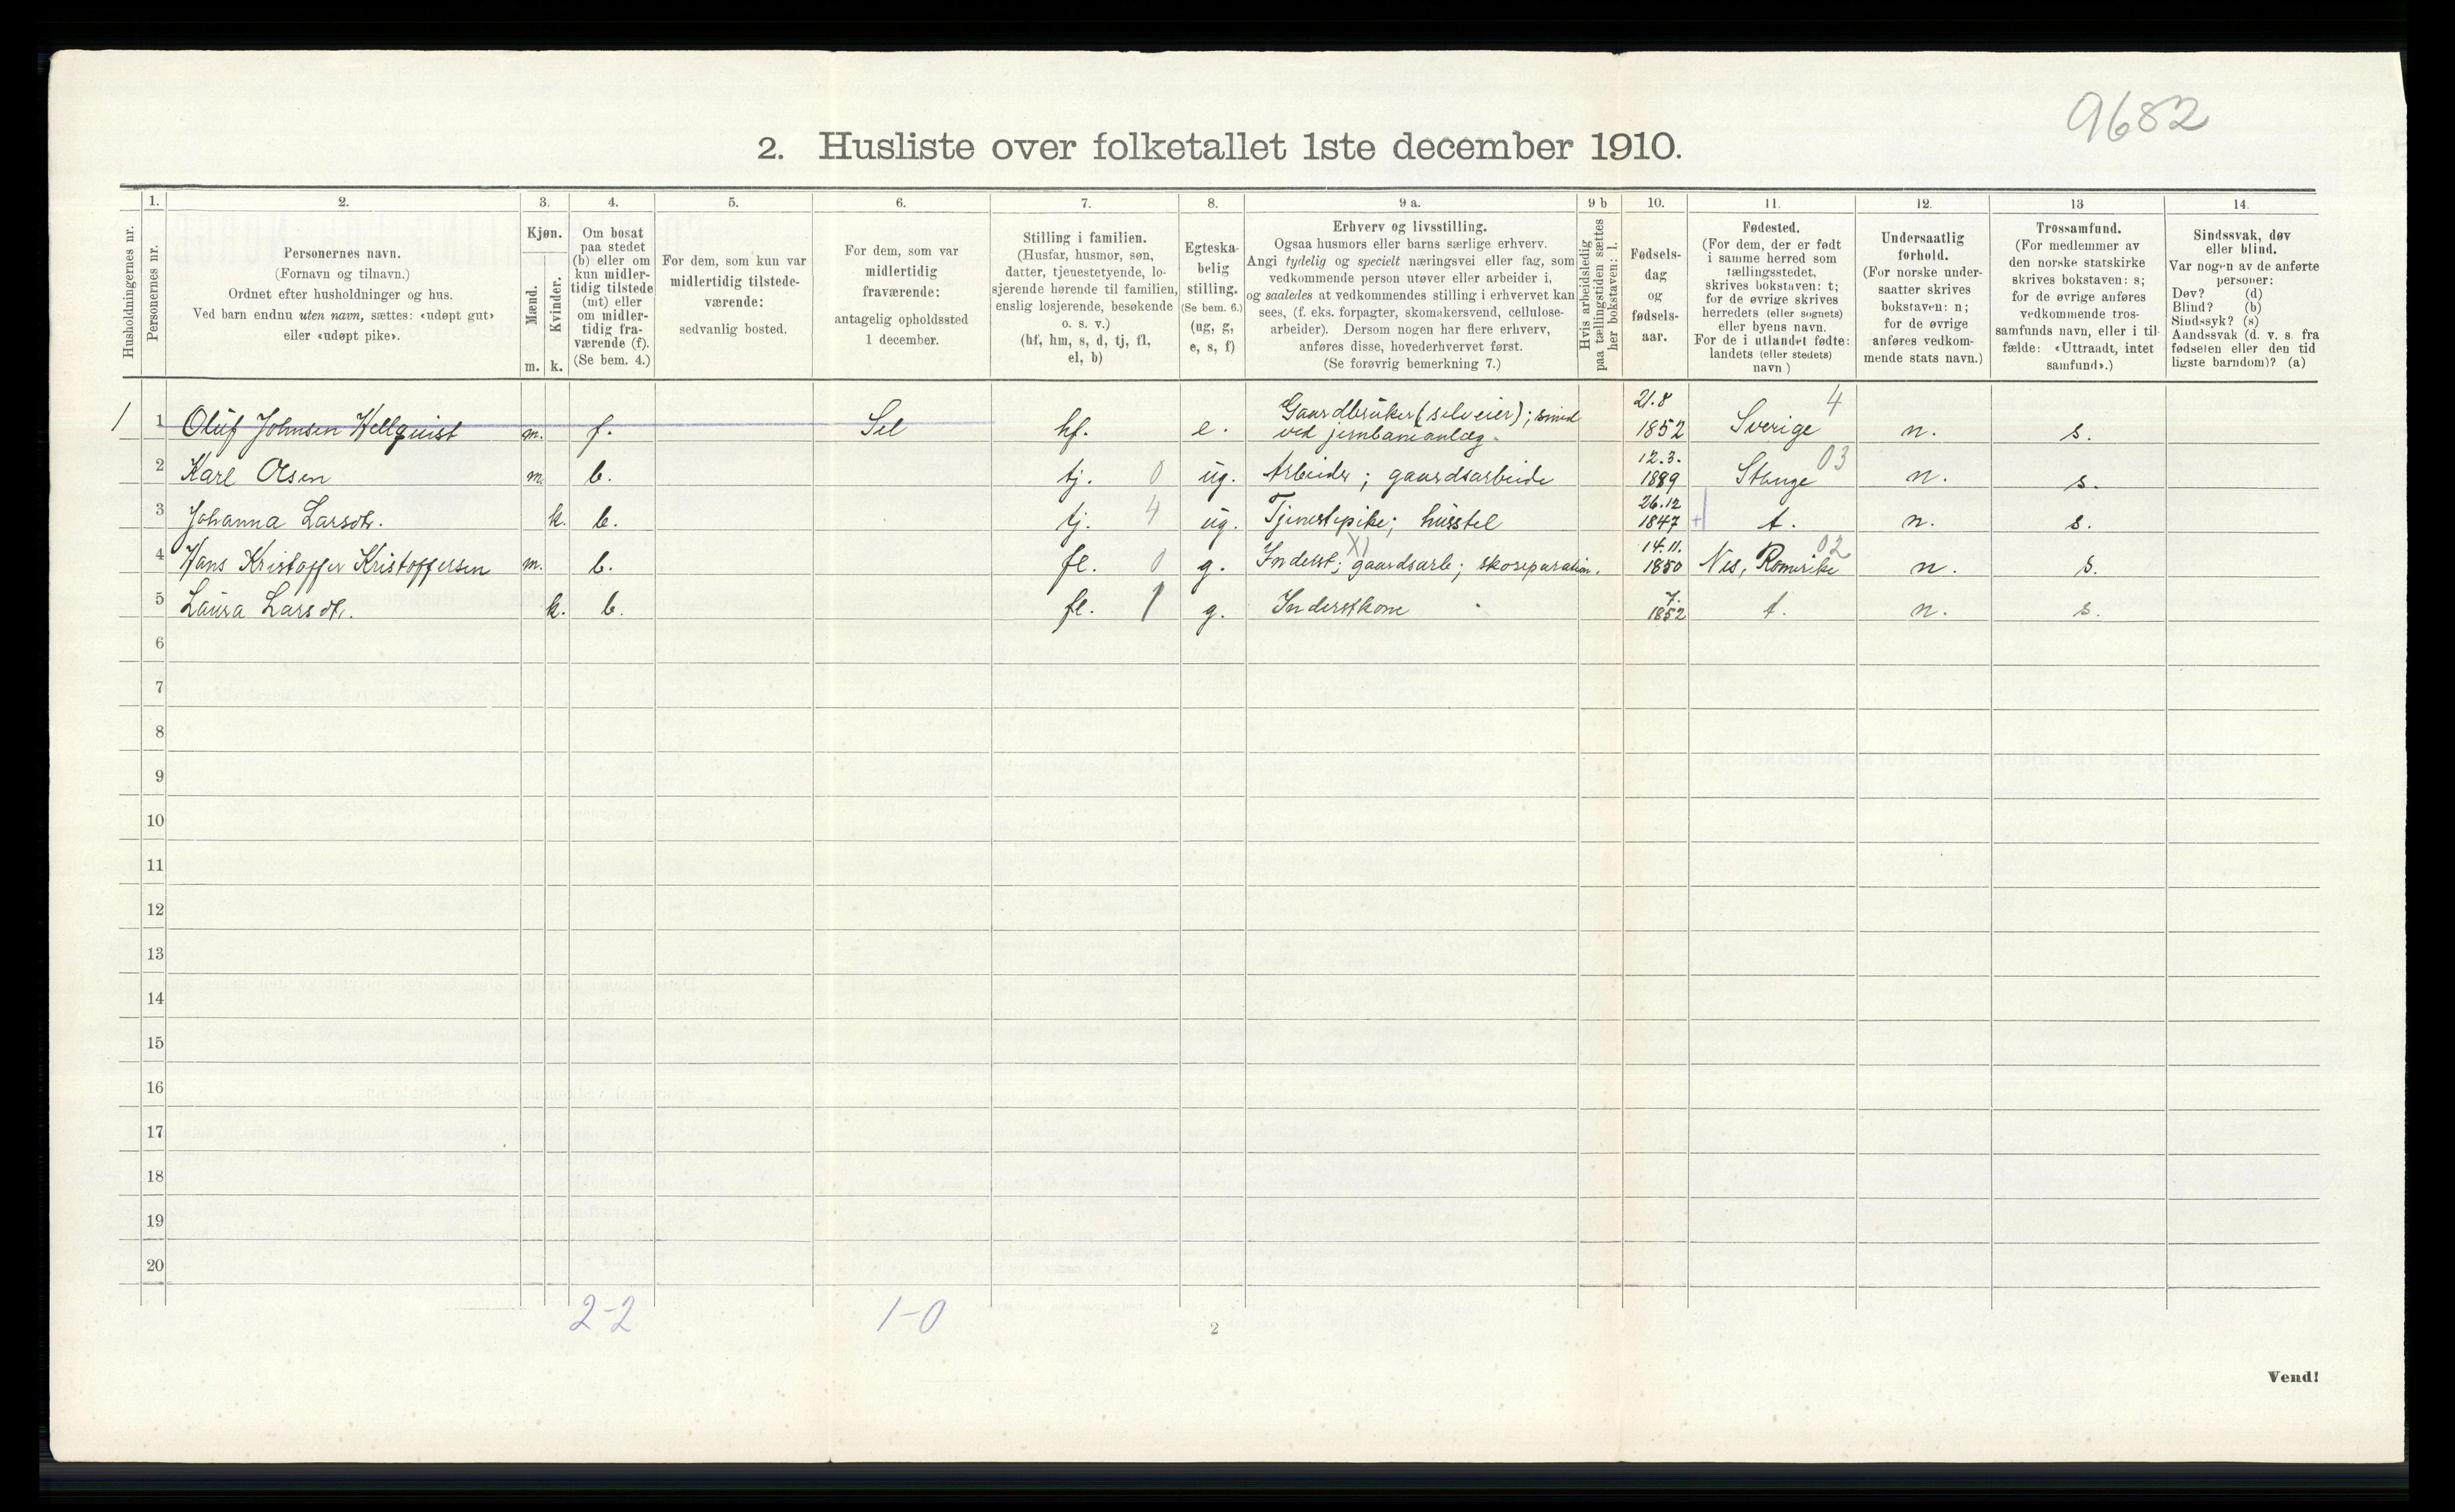 9682
2. Husliste over folketallet 1ste december 1910.
Husholdningernes nr.
1.
Personernes nr.
2.
Personernes navn.
(Fornavn og tilnavn.)
Ordnet efter husholdninger og hus.
Ved barn endnu uten navn, sættes: «udøpt gut»
eller «udøpt pike».
3.
Kjøn.
Mænd.
Kvinder.
m. k.
4.
Om bosat
paa stedet
(b) eller om
kun midler-
tidig tilstede
(mt) eller
om midler-
tidig fra-
værende (f).
(Se bem. 4.)
5.
For dem, som kun var
midlertidig tilstede-
værende:
sedvanlig bosted.
6.
For dem, som var
midlertidig
fraværende:
antagelig opholdssted
1 december.
7.
Stilling i familien.
(Husfar, husmor, søn,
datter, tjenestetyende, lo-
sjerende hørende til familien,
enslig losjerende, besøkende
o. s. v.)
(hf, hm, s, d, tj, fl,
el, b)
8.
Egteska-
belig
stilling.
(Se bem. 6.)
(ug, g,
e, s, f)
9 a.
Erhverv og livsstilling.
Ogsaa husmors eller barns særlige erhverv.
Angi tydelig og specielt næringsvei eller fag, som
vedkommende person utøver eller arbeider i,
og saaledes at vedkommendes stilling i erhvervet kan
sees, (f. eks. forpagter, skomakersvend, cellulose-
arbeider). Dersom nogen har flere erhverv,
anføres disse, hovederhvervet først.
(Se forøvrig bemerkning 7.)
9 b
Hvis arbeidsledig
paa tællingstiden sættes
her bokstaven: l.
10.
Fødsels-
dag
og
fødsels-
aar.
11.
Fødested.
(For dem, der er født
i samme herred som
tællingsstedet,
skrives bokstaven: t;
for de øvrige skrives
herredets (eller sognets)
eller byens navn.
For de i utlandet fødte:
landets (eller stedets)
navn)
12.
Undersaatlig
forhold.
(For norske under-
saatter skrives
bokstaven: n;
for de øvrige
anføres vedkom-
mende stats navn.)
13
Trossamfund.
(For medlemmer av
den norske statskirke
skrives bokstaven: s;
for de øvrige anføres
vedkommende tros-
samfunds navn, eller i til-
fælde: «Uttraadt, intet
samfund».)
14.
Sindssvak, døv
eller blind.
Var nogen av de anførte
personer:
Døv? (d)
Blind? (b)
Sindssyk? (s)
Aandssvak (d. v. s. fra
fødselen eller den tid
ligste barndom)? (a)
1 1 Oluf Johnsen Hellquist m. f. Sel hf. e. Gaardbruker (selveier); smed ved jernbaneanlæg. 21.8 1852 Sverige 4 n. s.
2 Karl Olsen m. b. tj. 0 ug. Arbeider; gaardsarbeide 12.3. 1889 Stange 03 n. s.
3 Johanna Larsdtr. k. b. tj. 4 ug. Tjenestepike; husstel 26.12 1847 + t. n. s.
4 Hans Kristoffer Kristoffersen m. b. fl. 0 g. Inderst; X) gaardsarb; skoreparation. 14.11. 1850 Nes, Romerike 02 n. s.
5 Laura Larsdtr. k. b. fl. 1 g. Inderstkone 7. 1852 t. n. s.
6
7
8
9
10
11
12
13
14
15
16
17
18
19
20
2-2 1-0
2
Vend!